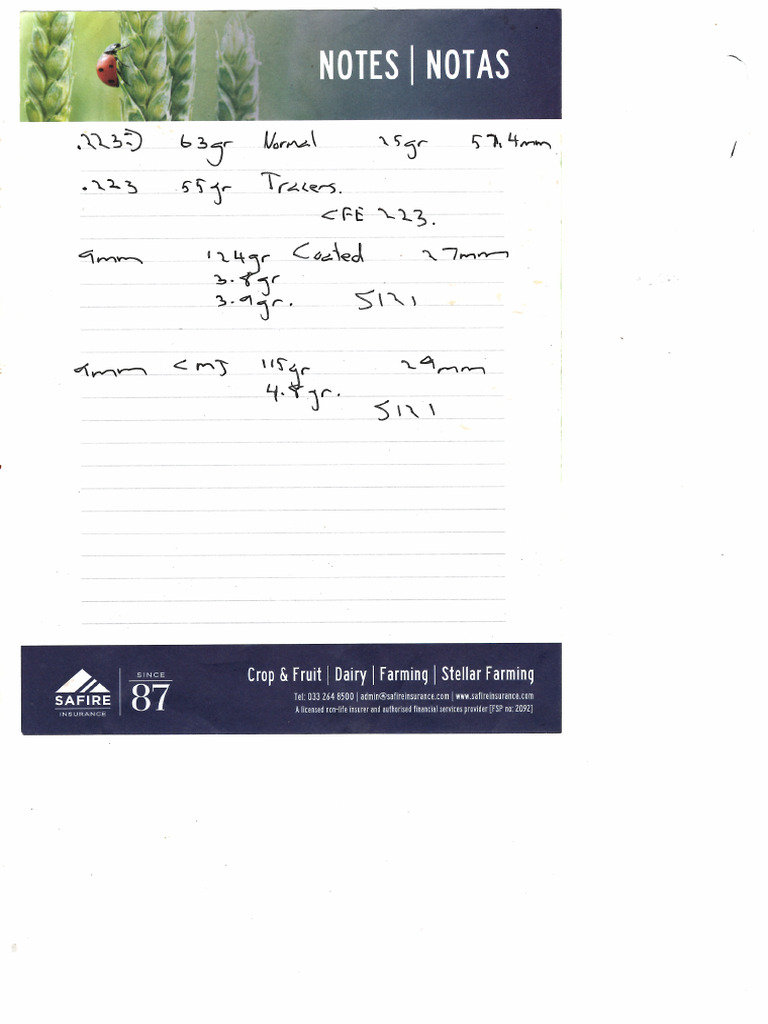 NOTES | NOTAS
.223 63gr Normal 25gr 57.4mm
.223 55gr Tracers.
CFE 223.
9mm 124gr Coated 27mm
3.8gr
3.9gr. S121
9mm CMJ 115gr 29mm
4.8gr.
S121
SAFIRE
INSURANCE
SINCE
87
Crop & Fruit | Dairy | Farming | Stellar Farming
Tel: 033 264 8500 | admin@safireinsurance.com | www.safireinsurance.com
A licensed non-life insurer and authorised financial services provider [FSP no: 2092]